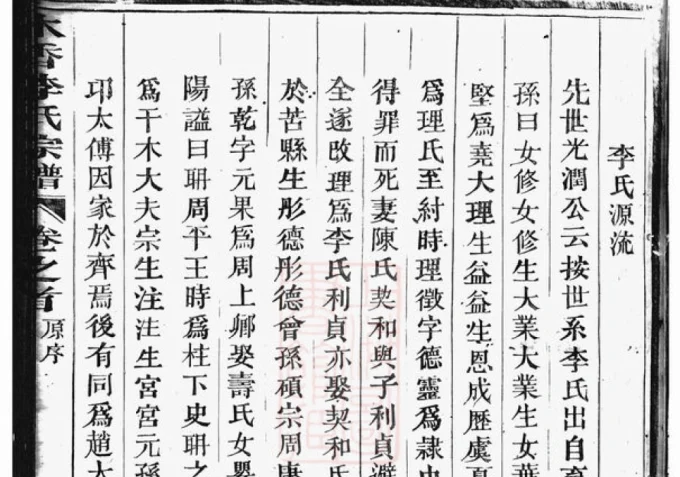 李氏源流
先世光潤公云按世系李氏出自
孫曰女修女修生大業大業生女華
堅爲堯大理生益益生恩成歷虞夏
爲理氏至紂時理徵字德靈爲隸中
得罪而死妻陳氏契和與子利貞避
全遂改理爲李氏利貞亦娶契和氏
於苦縣生彤德彤德曾孫碩宗周康
孫乾字元果爲周上卿娶壽氏女嬰
陽謚曰聃周平王時爲柱下史聃之
爲干木大夫宗生注注生宮宮元孫
卭太傅因家於齊焉後有同爲趙大
香李氏宗譜 卷之首 原序